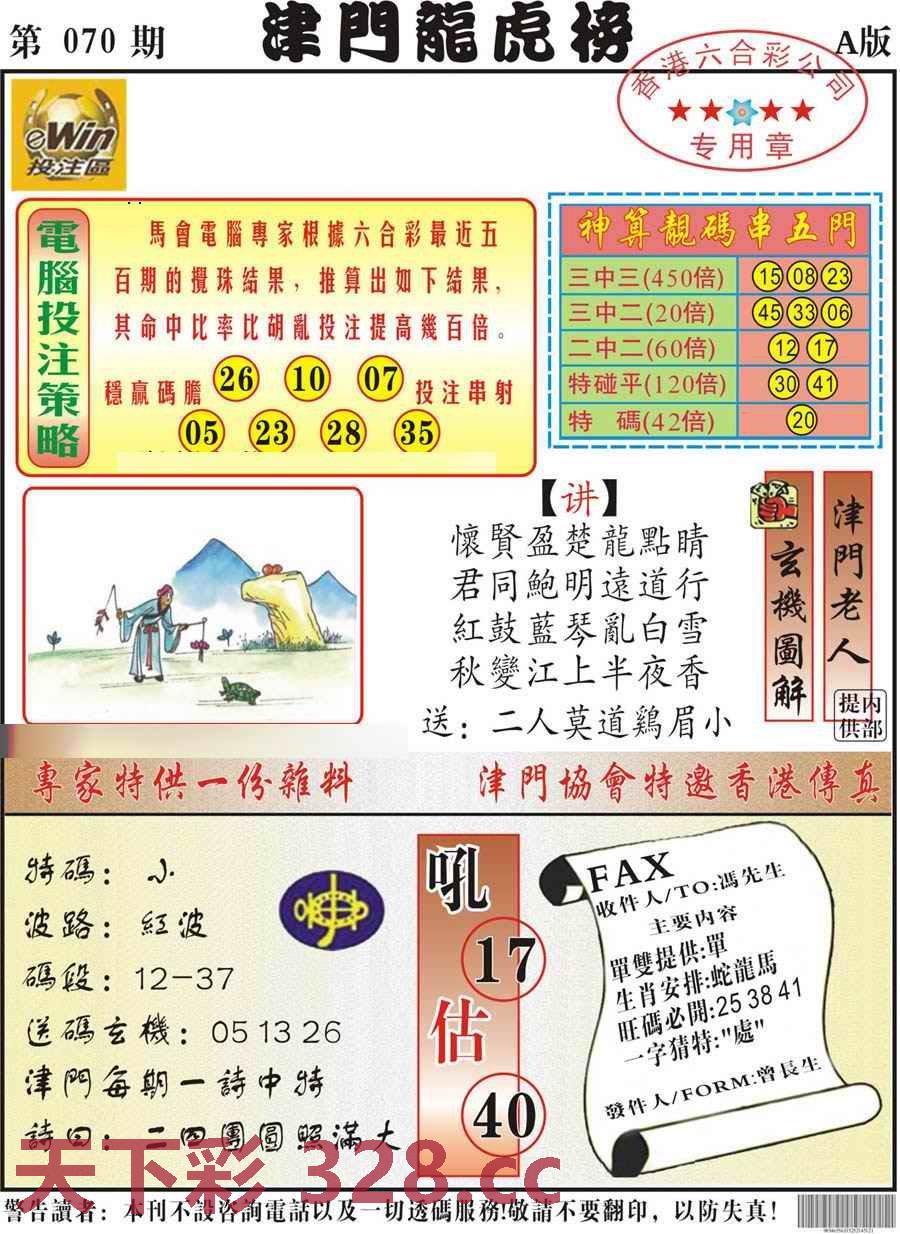 第 070 期
津門龍虎榜
A版
香港六合彩公司
专用章
eWin
投注區
電腦投注策略
馬會電腦專家根據六合彩最近五
百期的攪珠結果，推算出如下結果，
其命中比率比胡亂投注提高幾百倍。
穩贏碼膽 26 10 07 投注串射
05 23 28 35
神算靚碼串五門
三中三(450倍) 15 08 23
三中二(20倍) 45 33 06
二中二(60倍) 12 17
特碰平(120倍) 30 41
特 碼(42倍) 20
【讲】
懷賢盈楚龍點睛
君同鮑明遠道行
紅鼓藍琴亂白雪
秋變江上半夜香
送：二人莫道鷄眉小
玄機圖解
津門老人
内部提供
專家特供一份雜料
津門協會特邀香港傳真
特碼：小
波路：紅波
碼段：12-37
送碼玄機：05 13 26
津門每期一詩中特
詩曰：二四團圓照滿大
吼
17
估
40
FAX
收件人/TO:馮先生
主要内容
單雙提供:單
生肖安排:蛇龍馬
旺碼必開:25 38 41
一字猜特:"處"
發件人/FORM:曾長生
天下彩 328.cc
警告讀者：本刊不設咨詢電話以及一切透碼服務!敬請不要翻印，以防失真！